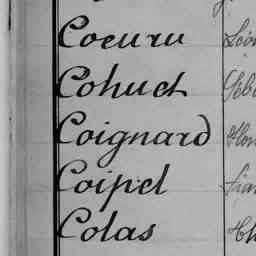 Coeuru
Cohuet
Coignard
Coipel
Colas